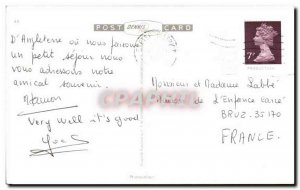 POST CARD
D'Angleterre où nous faisons
un petit séjour nous
vous adressons notre
amical souvenir.
Very well it's good
7P
Monsieur et Madame Labbé
de l'Enfance
BRUZ. 35170
FRANCE.